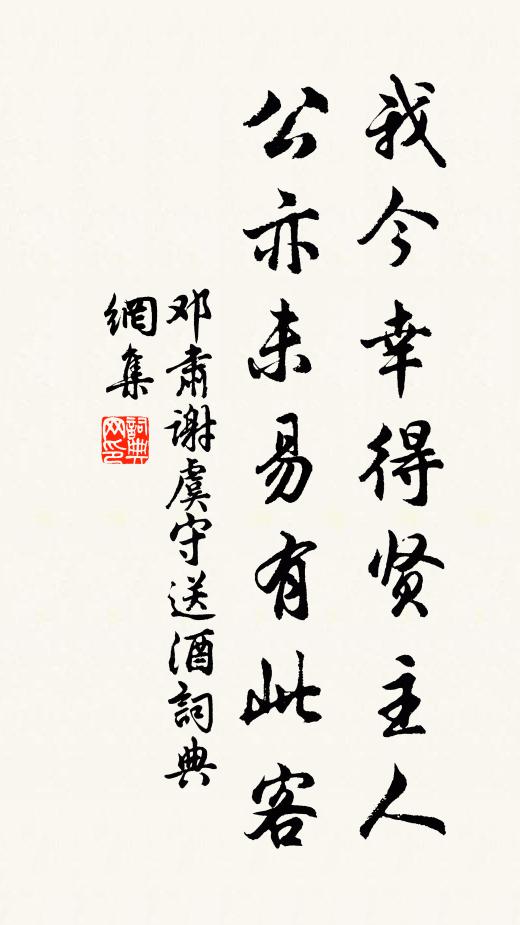 我今幸得贤主人
公亦未易有此客
邓肃谢虞守送酒詞典
網集
詞典网印